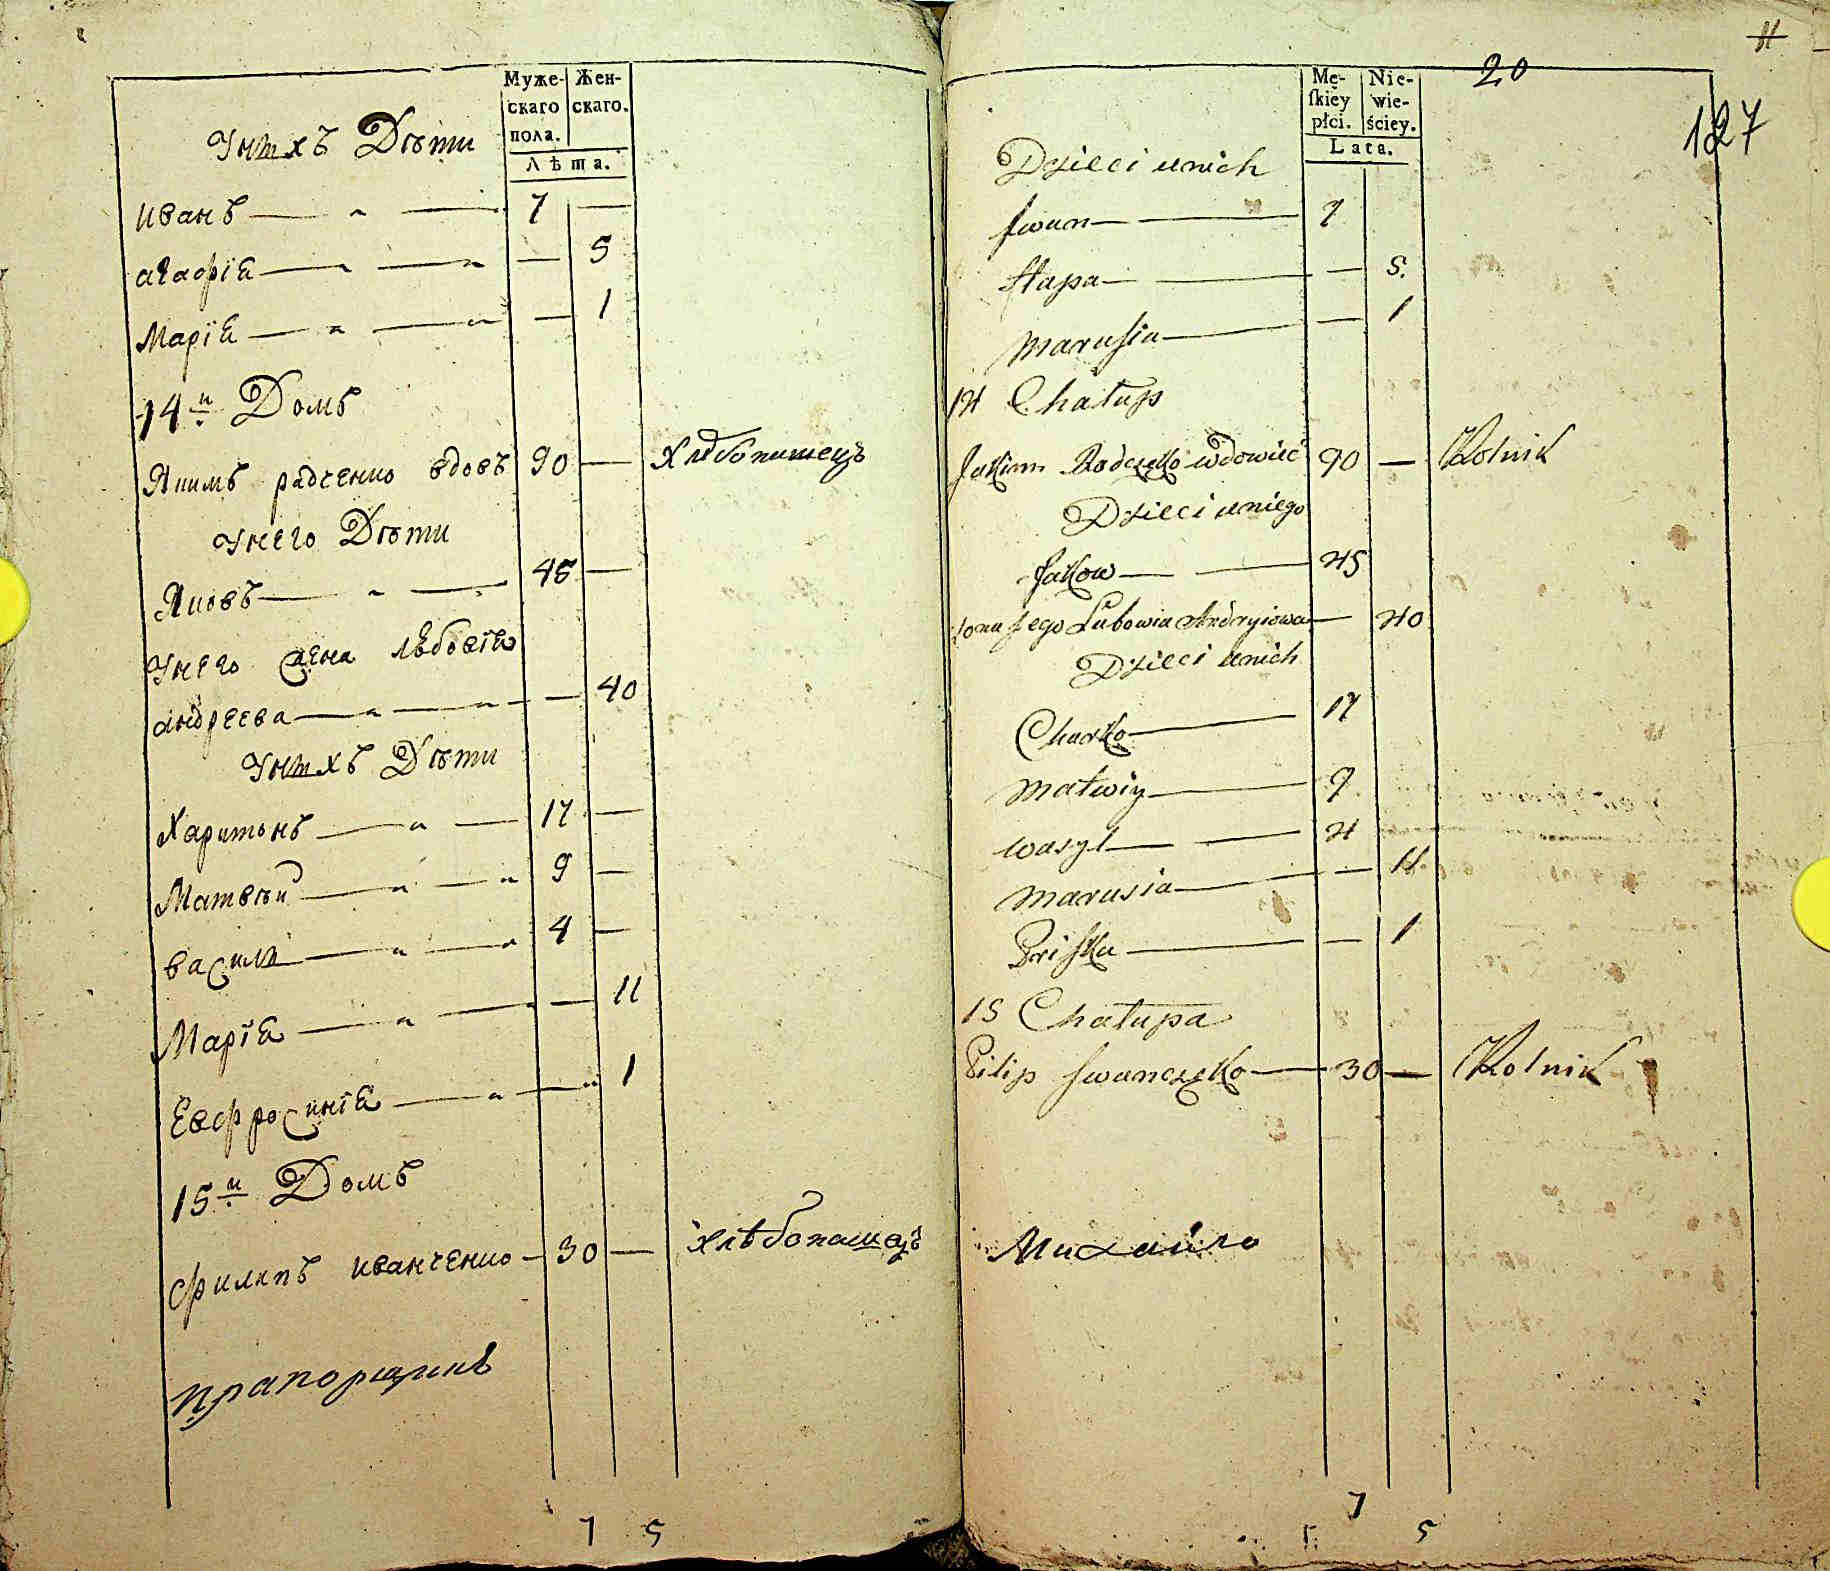 Муже-
скаго
пола.
Жен-
скаго.
Лѣта.
У нихъ Дѣти
иванъ 7
агафіа 5
Маріа 1
14й Домъ
Якимъ радченко вдовъ 90 Хлѣбопашецъ
У него Дѣти
Яковъ 45
У него жена Любовіа
андреева 40
У нихъ Дѣти
Харитонъ 17
Матвѣй 9
василь 4
Маріа 11
Евфросиніа 1
15й Домъ
филипъ иванченко 30 хлѣбопашецъ
прапорщикъ
7 5
11
20
127
Mę-
ſkiéy
płci.
Nie-
wie-
ściey.
Lata.
Dzieci u nich
Jwan 7
Hapa 5.
Marusia 1
14 Chałup
Jakim Radczeko wdowiec 90 Rolnik
Dzieci u niego
Jakow 45
żona Jego Lubowia Andryiowa 40
Dzieci u nich
Charko 17
Matwiy 9
wasyl 4
Marusia 11
Priska 1
15 Chałupa
Pilip Jwanczeko 30 Rolnik
Михайло
7
5